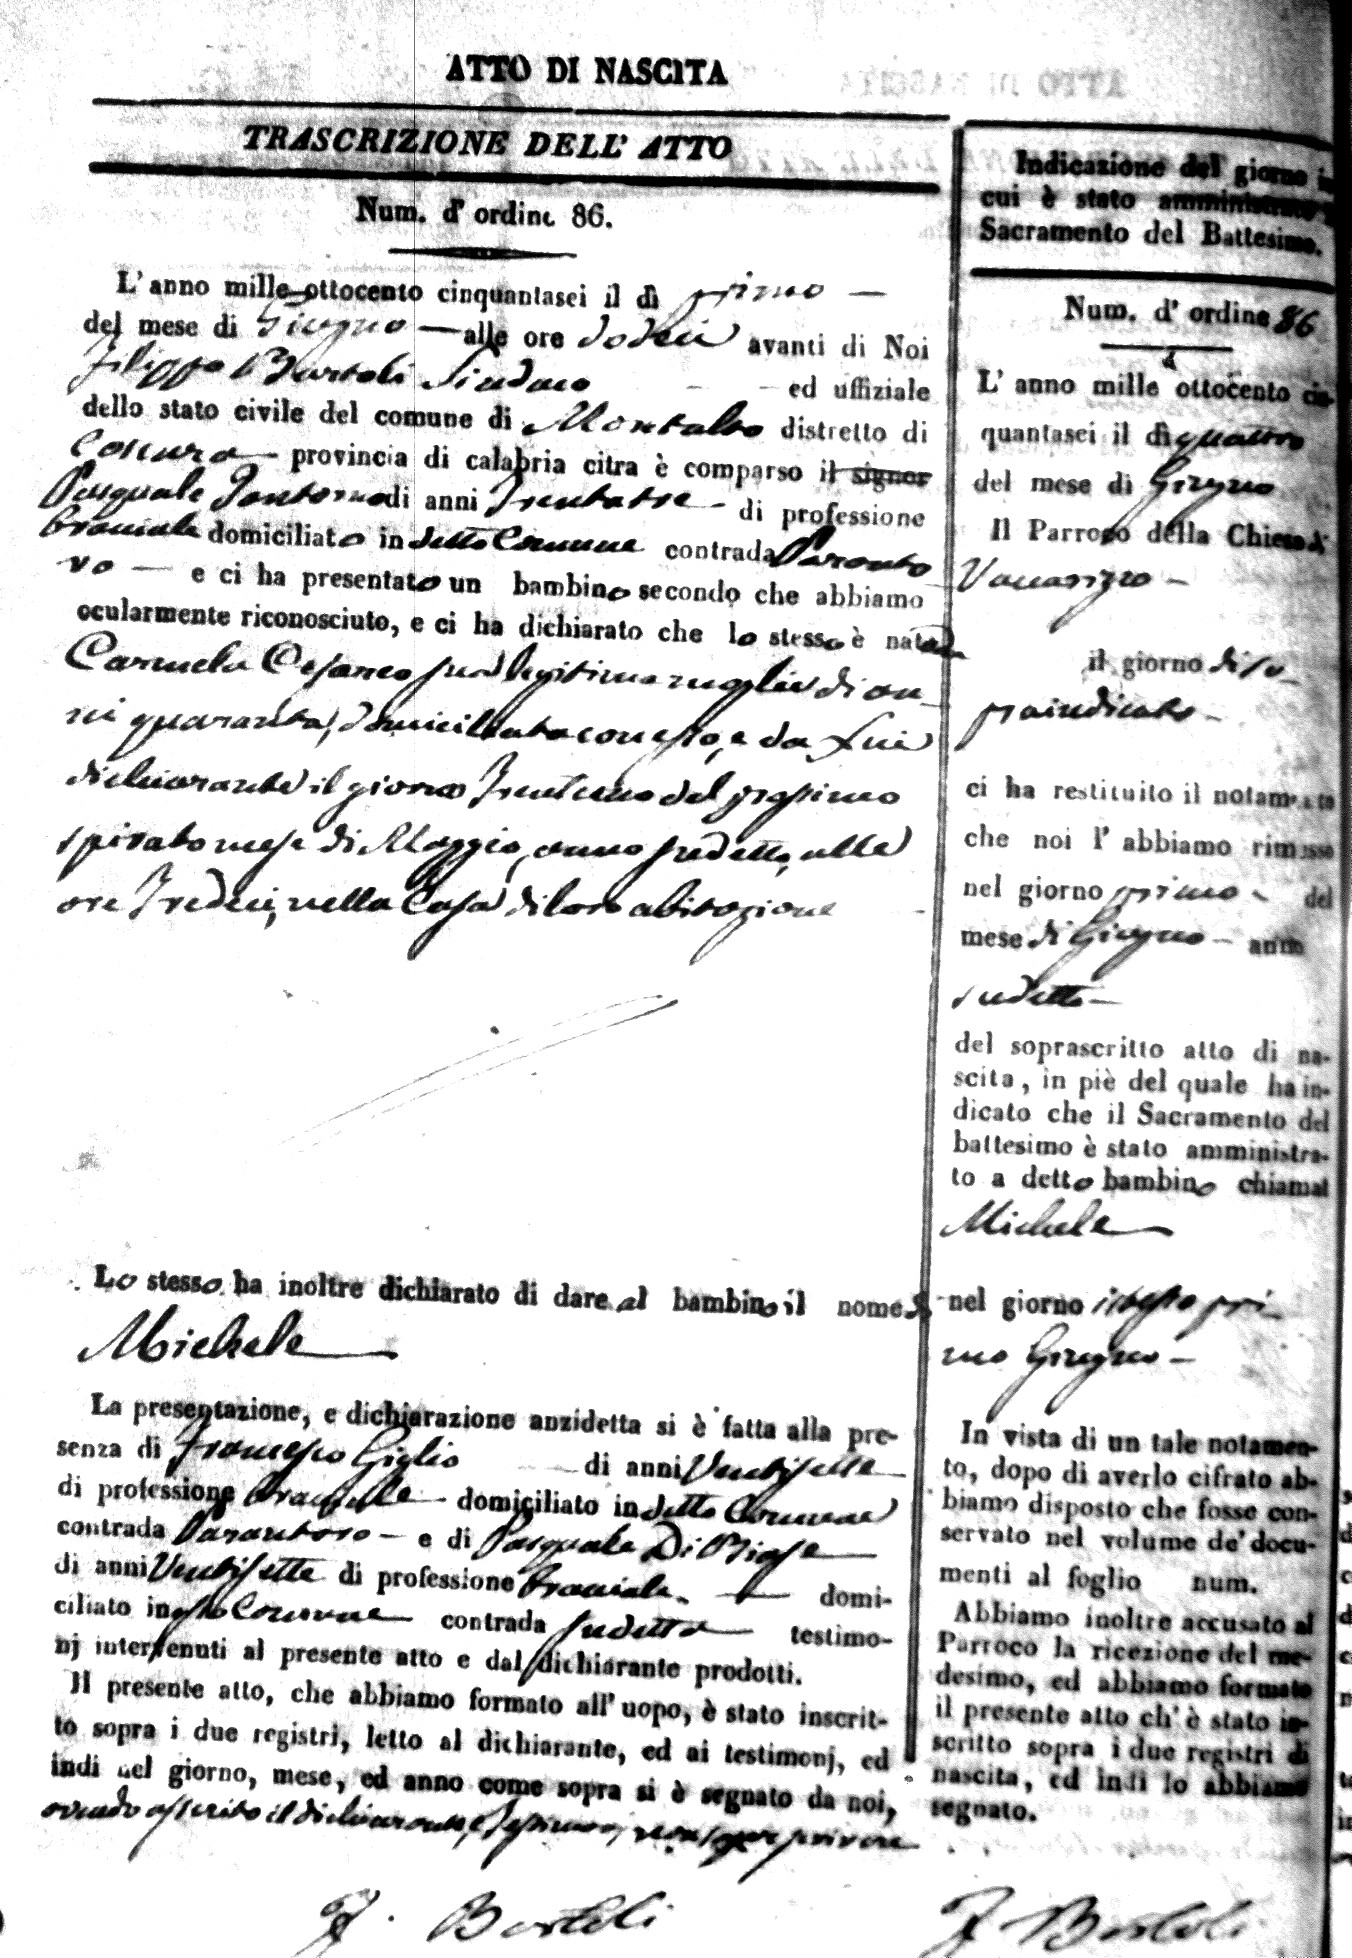 ATTO DI NASCITA
TRASCRIZIONE DELL' ATTO
Num. d' ordine 86.
L' anno mille ottocento cinquantasei il dì primo
del mese di Giugno alle ore dodeci avanti di Noi
Filippo Bartoli Sindaco ed uffiziale
dello stato civile del comune di Montalto distretto di
Cosenza provincia di calabria citra è comparso il signor
Pasquale di anni Trentatre di professione
bracciale domiciliato in detto Comune contrada Paranto
ro e ci ha presentato un bambino secondo che abbiamo
ocularmente riconosciuto, e ci ha dichiarato che lo stesso è nato da
Carmela sua legitima moglie di an
ni quaranta, domiciliata con esso, e da lui
dichiarante il giorno Trentuno del prossimo
spirato mese di Maggio, anno sudetto, alle
ore Tredeci, nella Casa di loro abitazione
Lo stesso ha inoltre dichiarato di dare al bambino il nome di
Michele
La presentazione, e dichiarazione anzidetta si è fatta alla pre-
senza di Francesco Giglio di anni Ventisette
di professione bracciale domiciliato in detto Comune
contrada Parantoro e di Pasquale Di Biase
di anni Ventisette di professione bracciale domi-
ciliato in esso Comune contrada sudetta testimo-
nj intervenuti al presente atto e dal dichiarante prodotti.
Il presente atto, che abbiamo formato all' uopo, è stato inscrit-
to sopra i due registri, letto al dichiarante, ed ai testimonj, ed
indi nel giorno, mese, ed anno come sopra si è segnato da noi,
avendo asserito il dichiarante, e testimonj non saper scrivere
F. Bartoli
Indicazione del giorno in
cui è stato amministrato il
Sacramento del Battesimo.
Num. d' ordine 86
L' anno mille ottocento cin-
quantasei il dì quattro
del mese di Giugno
Il Parroco della Chiesa di
Vaccarizzo
il giorno di so
praindicato
ci ha restituito il notamento
che noi l' abbiamo rimesso
nel giorno primo del
mese di Giugno anno
sudetto
del soprascritto atto di na-
scita, in piè del quale ha in-
dicato che il Sacramento del
battesimo è stato amministra-
to a detto bambino chiamat
Michele
nel giorno istesso pri
mo Giugno
In vista di un tale notamen-
to, dopo di averlo cifrato ab-
biamo disposto che fosse con-
servato nel volume de' docu-
menti al foglio num.
Abbiamo inoltre accusato al
Parroco la ricezione del me-
desimo, ed abbiamo formato
il presente atto ch' è stato in-
scritto sopra i due registri di
nascita, ed indi lo abbiamo
segnato.
F. Bartoli